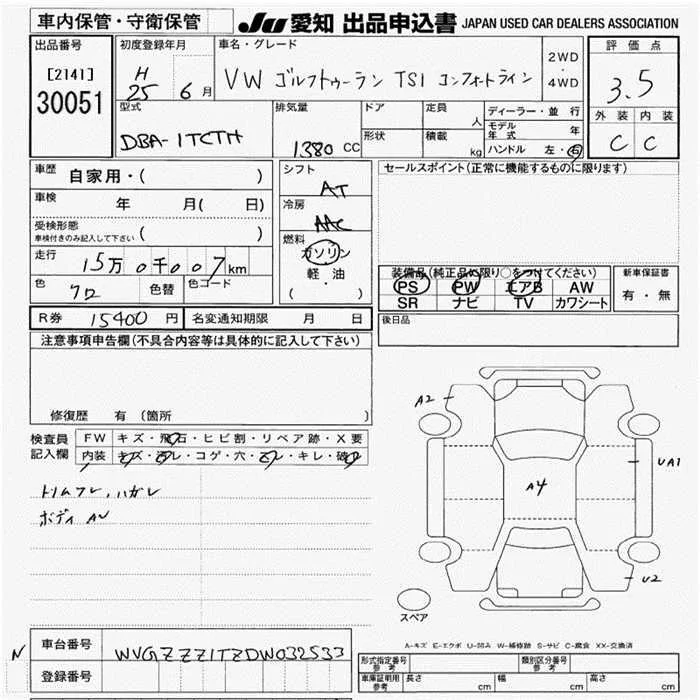 車内保管・守衛保管
JU 愛知 出品申込書 JAPAN USED CAR DEALERS ASSOCIATION
出品番号
[2141]
30051
初度登録年月
H
25 6月
車名・グレード
VW ゴルフトゥーラン TSI コンフォートライン
2WD
・
4WD
評価点
3.5
外装 内装
C C
型式
DBA-1TCTH
排気量
1380 CC
ドア
形状
定員
人
積載
kg
ディーラー・並 行
モデル年式 年
ハンドル 左・右
車歴
自家用・( )
車検
年 月( 日)
受検形態
車検付きのみ記入して下さい ( )
走行
15万0千007km
色
クロ
色替
色コード
シフト
AT
冷房
AAC
燃料
ガソリン
軽・油
( ・ )
セールスポイント(正常に機能するものに限ります)
装備品(純正品に限り○をつけてください)
PS PW エアB AW
SR ナビ TV カワシート
新車保証書
有・無
R券 15400 円 名変通知期限 月 日
後日品
注意事項申告欄(不具合内容等は具体的に記入して下さい)
修復歴 有 (箇所 )
検査員
記入欄
FW キズ・飛石・ヒビ割・リペア跡・X要
内装 キズ・汚レ・コゲ・穴・スレ・キレ・破レ
トリムスレ、ハガレ
ボディ AU
A2
UA1
A4
U2
スペア
A-キズ E-エクボ U-凹み W-補修跡 S-サビ C-腐食 XX-交換済
N
車台番号 WVGZZZ1TZDW032533
登録番号
形式指定番号
参考
類別区分番号
参考
車庫証明用
参考
長さ cm 幅 cm 高さ cm